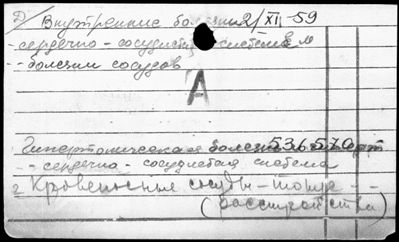 Д/ Внутренние болезни 2/XI-59
- сердечно - сосудистая система
-- болезни сосудов
А
Гипертоническая болезнь 536570
-- сердечно - сосудистая система
2 Кровеносные сосуды - тонус --
(расстройства)